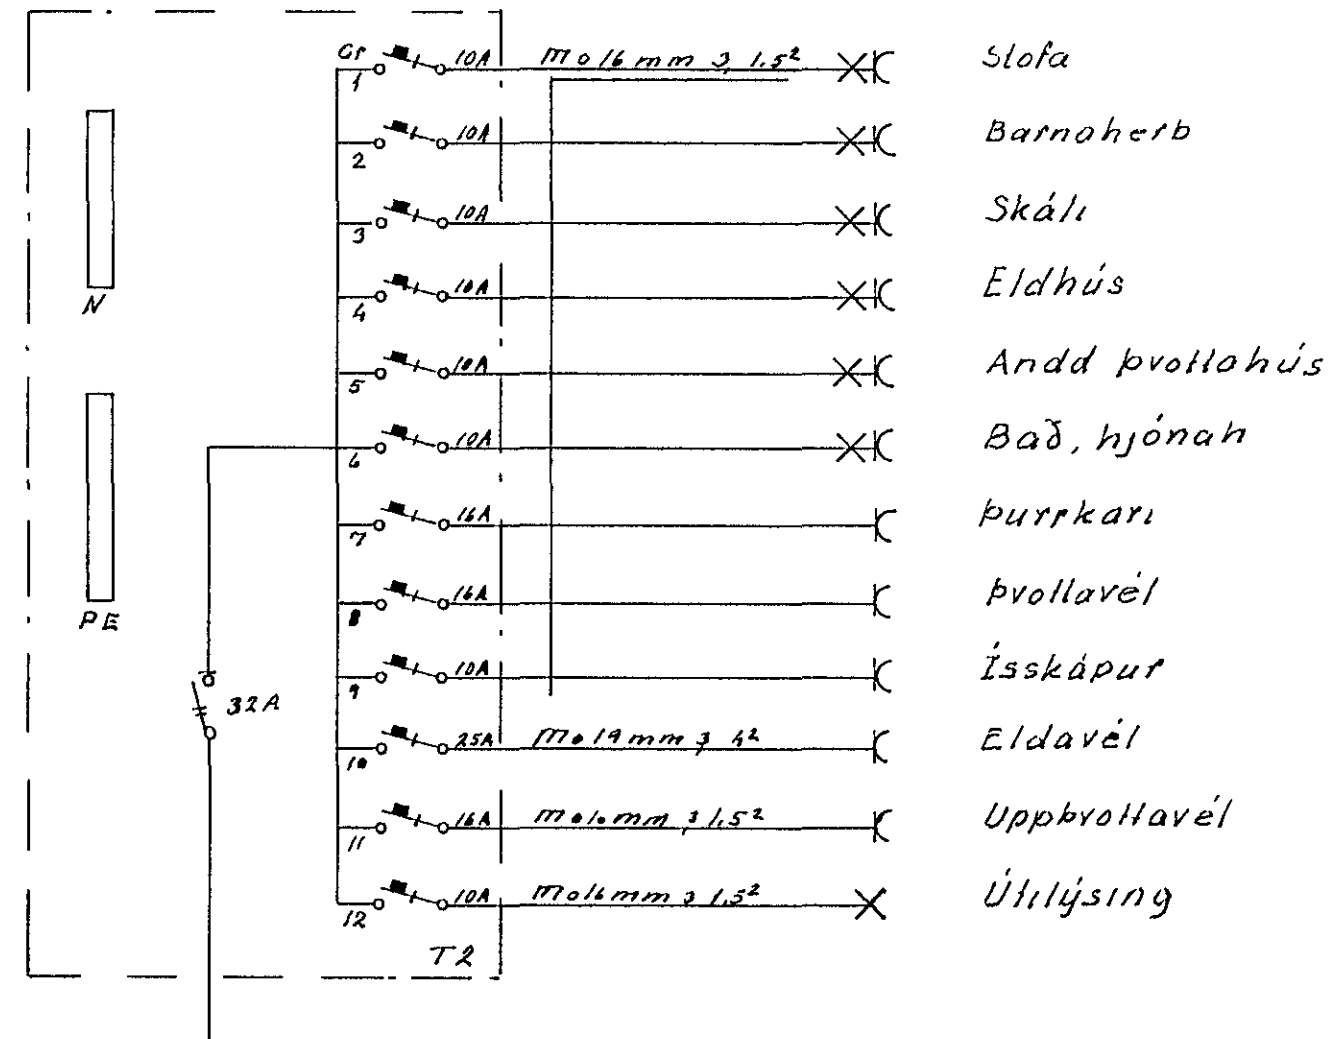 Gr 1 10A Mo 16 mm 3, 1.5² Stofa
2 10A Barnaherb
3 10A Skáli
N 4 10A Eldhús
5 10A Andd þvottahús
6 10A Bað, hjónah
7 16A Þurrkari
PE 8 16A Þvottavél
9 10A Ísskápur
32A
10 25A Mo 19 mm 3, 4² Eldavél
11 16A mm 3 1.5² Uppþvottavél
12 10A Mo 16 mm 3 1.5² Útilýsing
T2